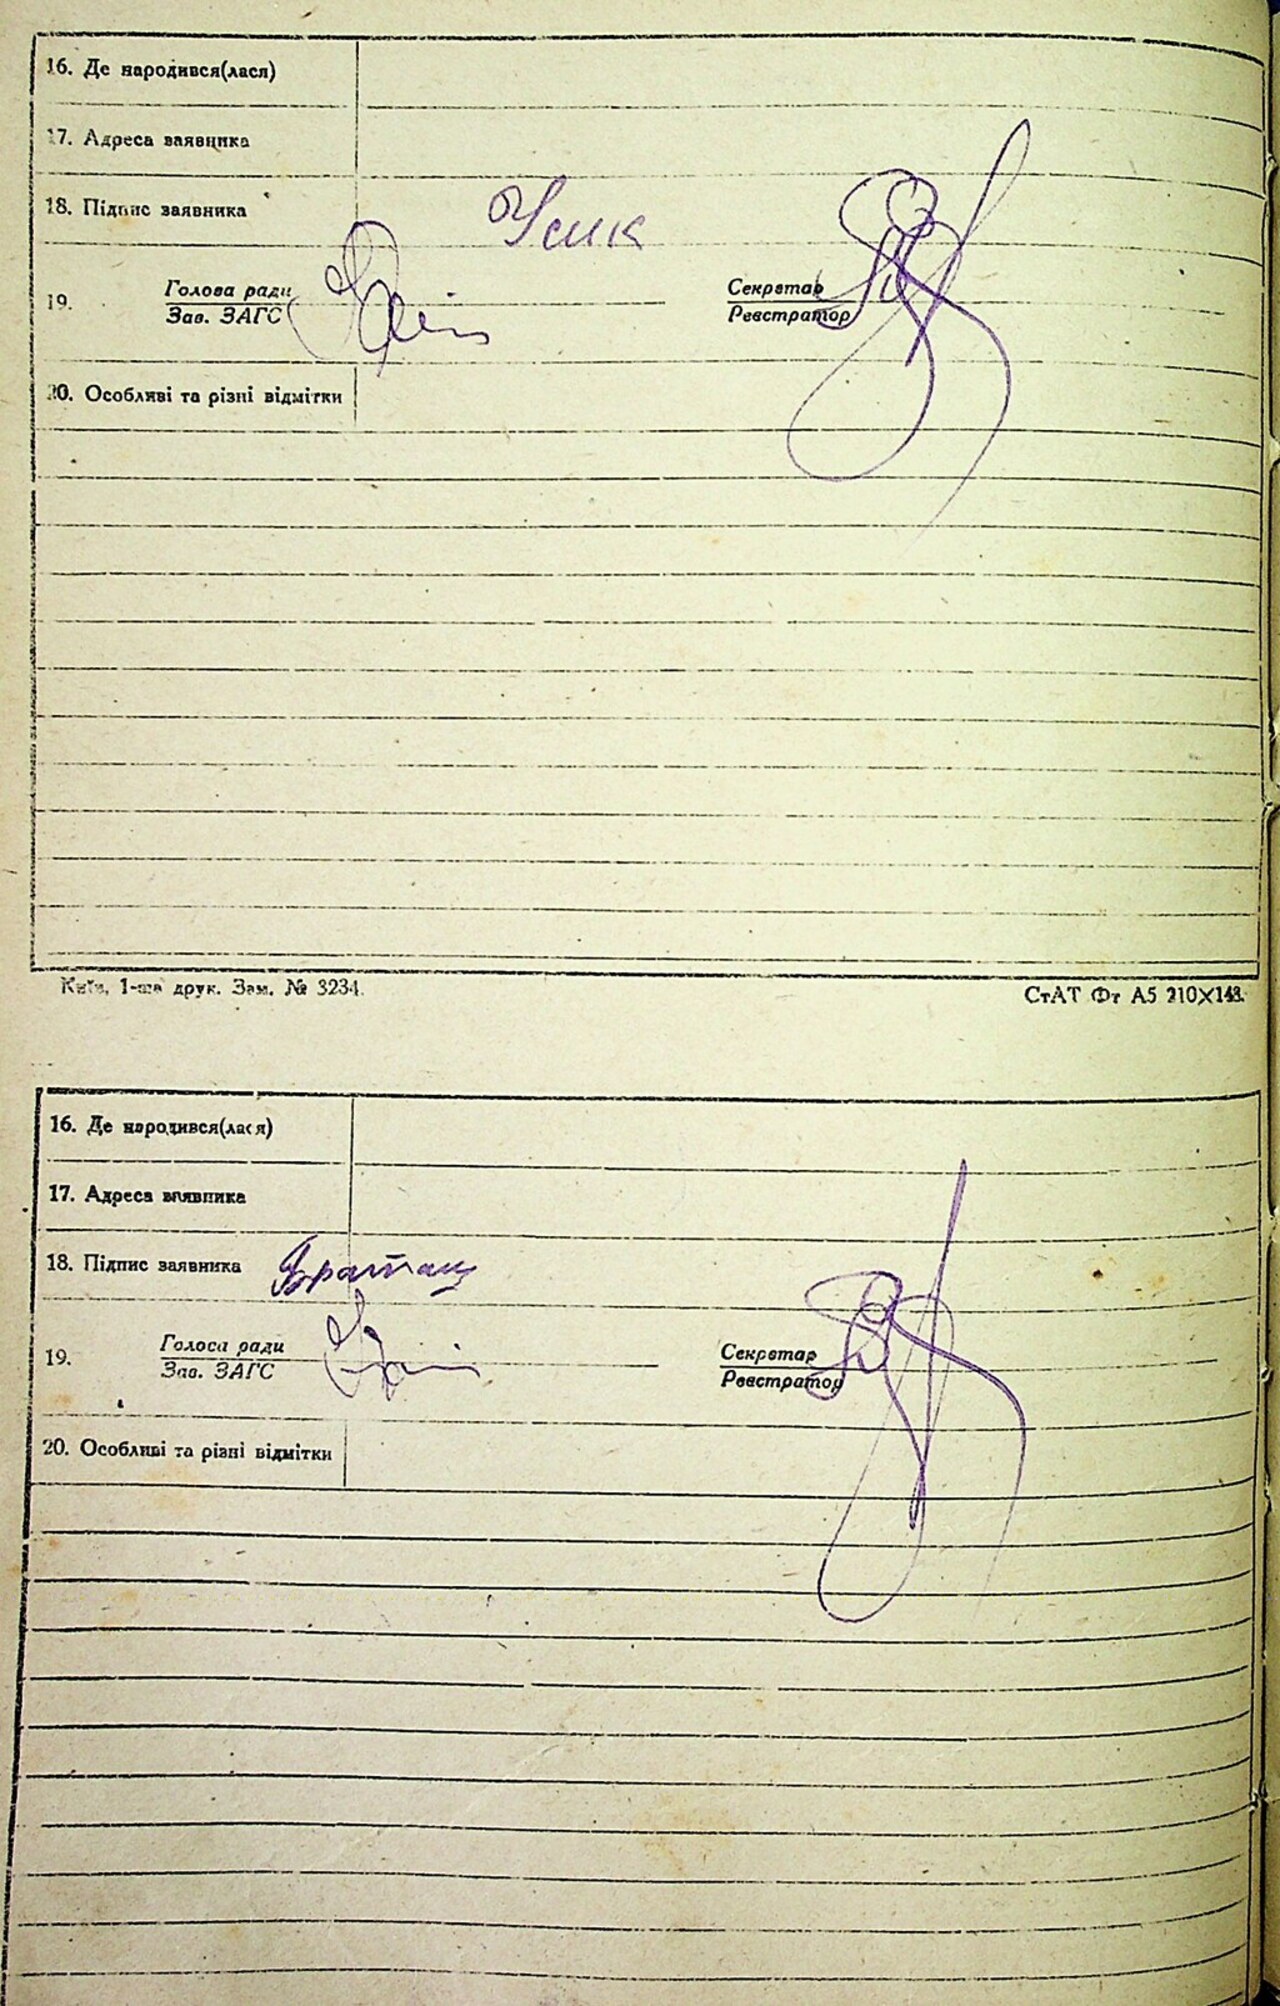 16. Де народився(лася)
17. Адреса заявника
18. Підпис заявника Усик
19. Голова ради Секретар
Зав. ЗАГС Реєстратор
20. Особливі та різні відмітки
Київ, 1-ша друк. Зам. № 3234. СтАТ Фт А5 210×148.
16. Де народився(лася)
17. Адреса заявника
18. Підпис заявника
19. Голова ради Секретар
Зав. ЗАГС Реєстратор
20. Особливі та різні відмітки